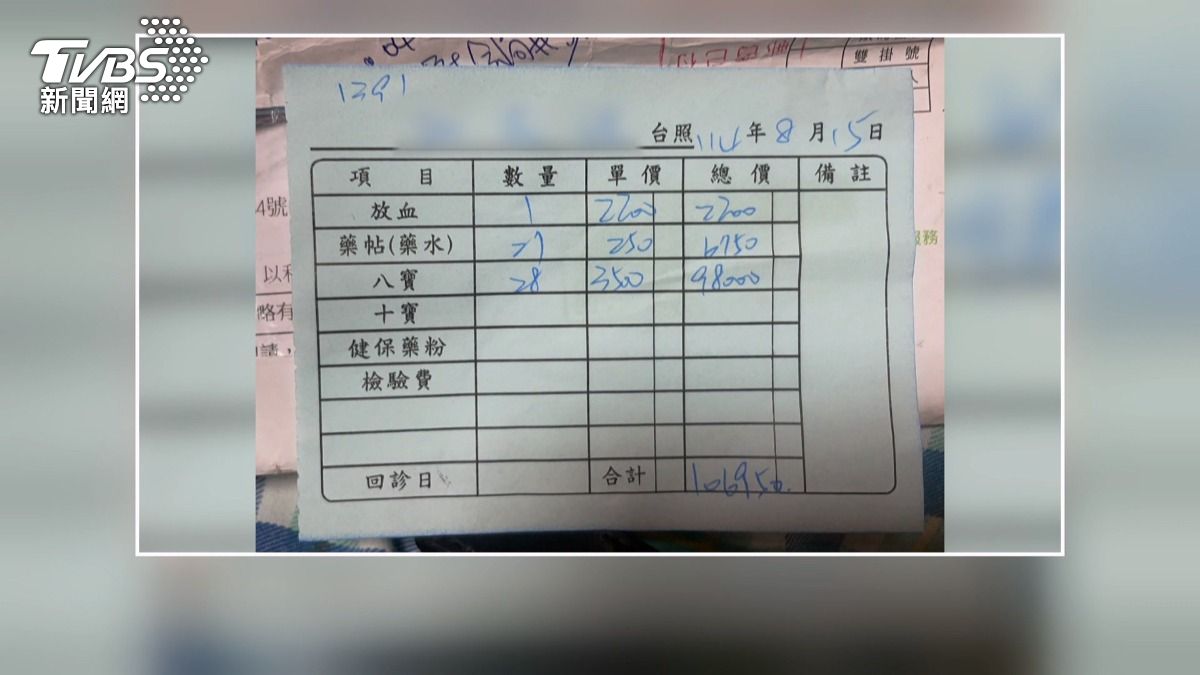 TVBS
新聞網
雙掛號
1391
台照 114年8月15日
項目 數量 單價 總價 備註
放血 1 2200 2200
藥帖(藥水) 27 250 6750
八寶 28 3500 98000
十寶
健保藥粉
檢驗費
回診日 合計 106950
4號
以利
略有
請，
服務